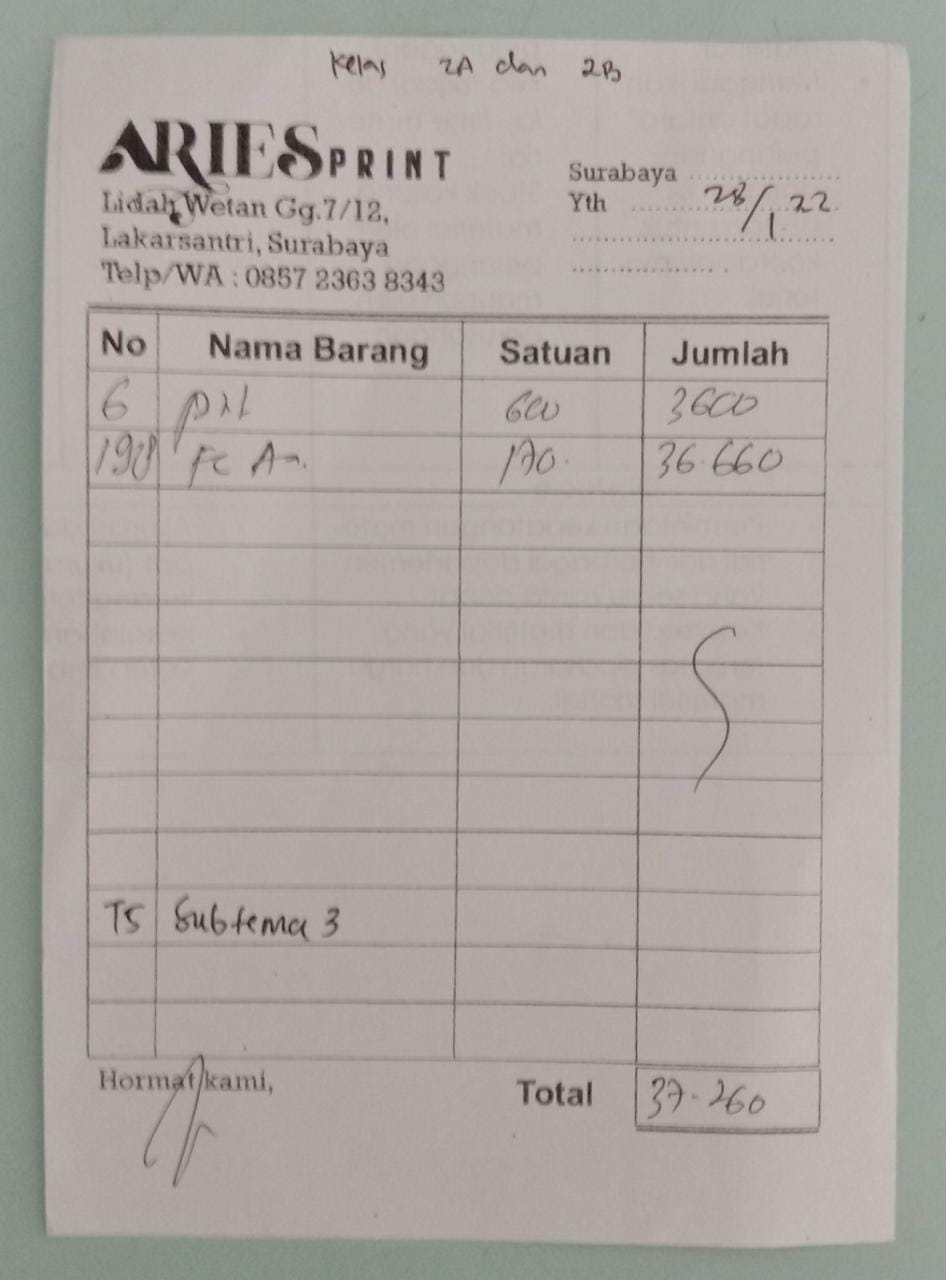 Kelas 2A dan 2B
ARIES PRINT
Lidah Wetan Gg.7/12,
Lakarsantri, Surabaya
Telp/WA : 0857 2363 8343
Surabaya
Yth 28/1.22
No Nama Barang Satuan Jumlah
6 600 3600
198 Fc 170. 36.660
T5 Subtema 3
Hormat kami,
Total 37.260